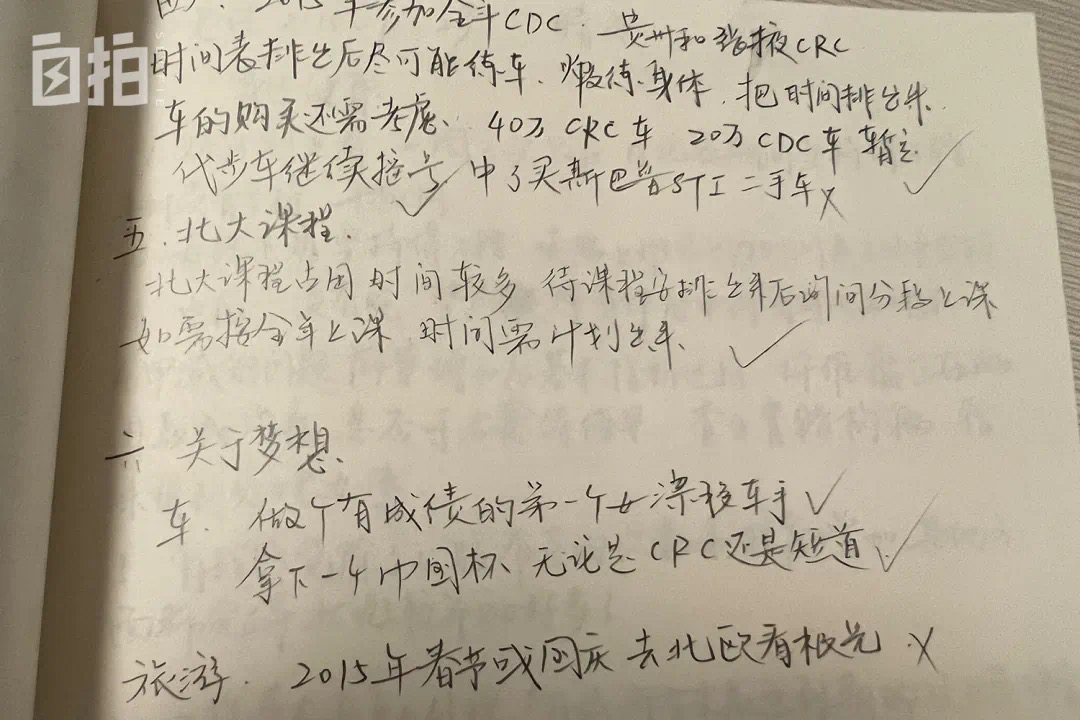 自拍
四. 2015年参加全年CDC. 贵州和张掖CRC
时间表排出后尽可能练车、锻练身体, 把时间排出来.
车的购买还需考虑. 40万CRC车 20万CDC车 暂定 ✓
代步车继续摇号 ✓ 中了买斯巴鲁STI二手车 X
五. 北大课程.
北大课程占用时间较多 待课程安排出来后 时间分段上课
如需按全年上课 时间需计划出来. ✓
六 关于梦想.
车. 做个有成绩的第一个女漂移车手 ✓
拿下一个中国杯、无论是CRC还是短道 ✓
旅游. 2015年春节或国庆去北欧看极光 X